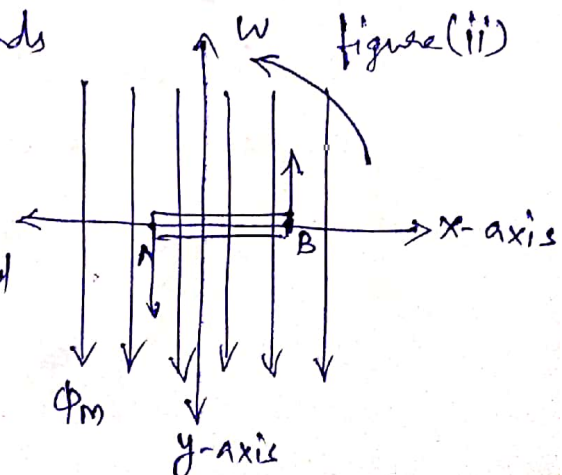 ds
W
figure(ii)
A
B
X-axis
Φm
y-axis